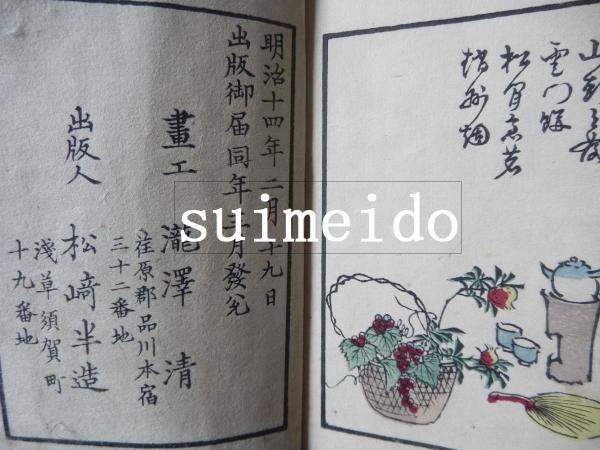 明治十四年二月十九日
出版御届同年三月發兌
畫工 瀧澤清
荏原郡品川本宿
三十二番地
出版人 松﨑半造
淺草須賀町
十九番地
雲門餅
suimeido